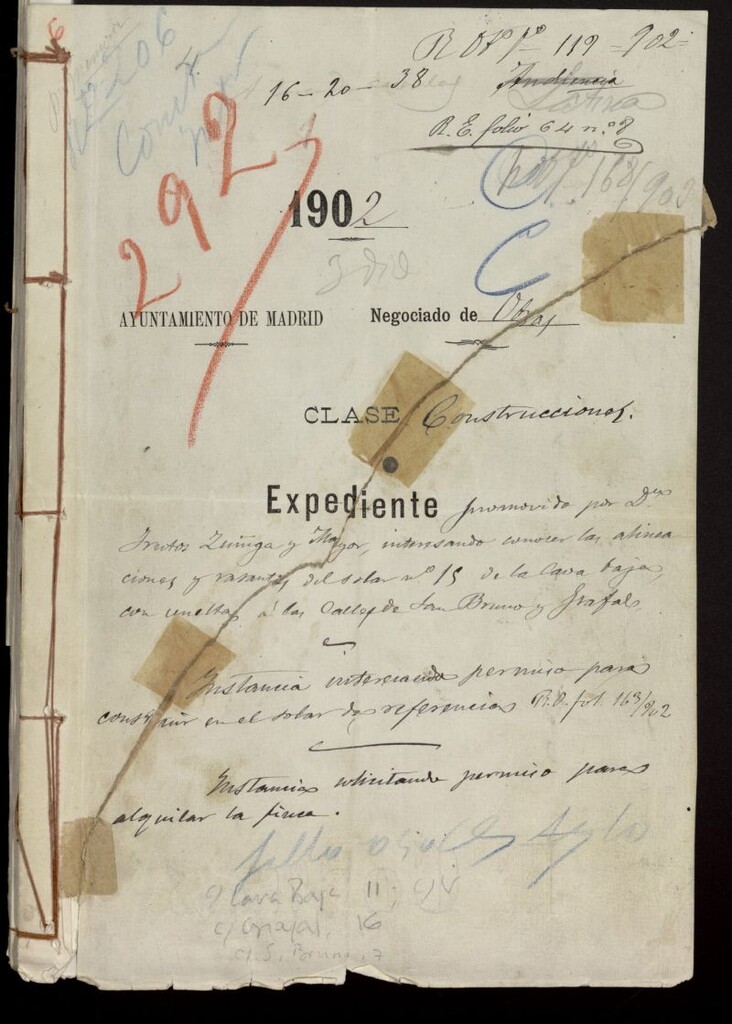 119 - 902
16 - 20 - 38
Audiencia
Latina
R. E. folio 64 nº 8
292
168/902
1902
AYUNTAMIENTO DE MADRID Negociado de Obras
C
CLASE Construcciones.
Expediente promovido por Dn
Frutos Zúñiga y Mayor, interesando conocer las alinea
ciones y rasantes del solar nº 15 de la Cava baja,
con vueltas á las Calles de San Bruno y Grafal.
Instancia interesando permiso para
construir en el solar de referencia R.O. fol. 163/902
Instancia solicitando permiso para
alquilar la finca.
c/ Cava Baja 11
c/ Grafal, 16
c/ S. Bruno, 7